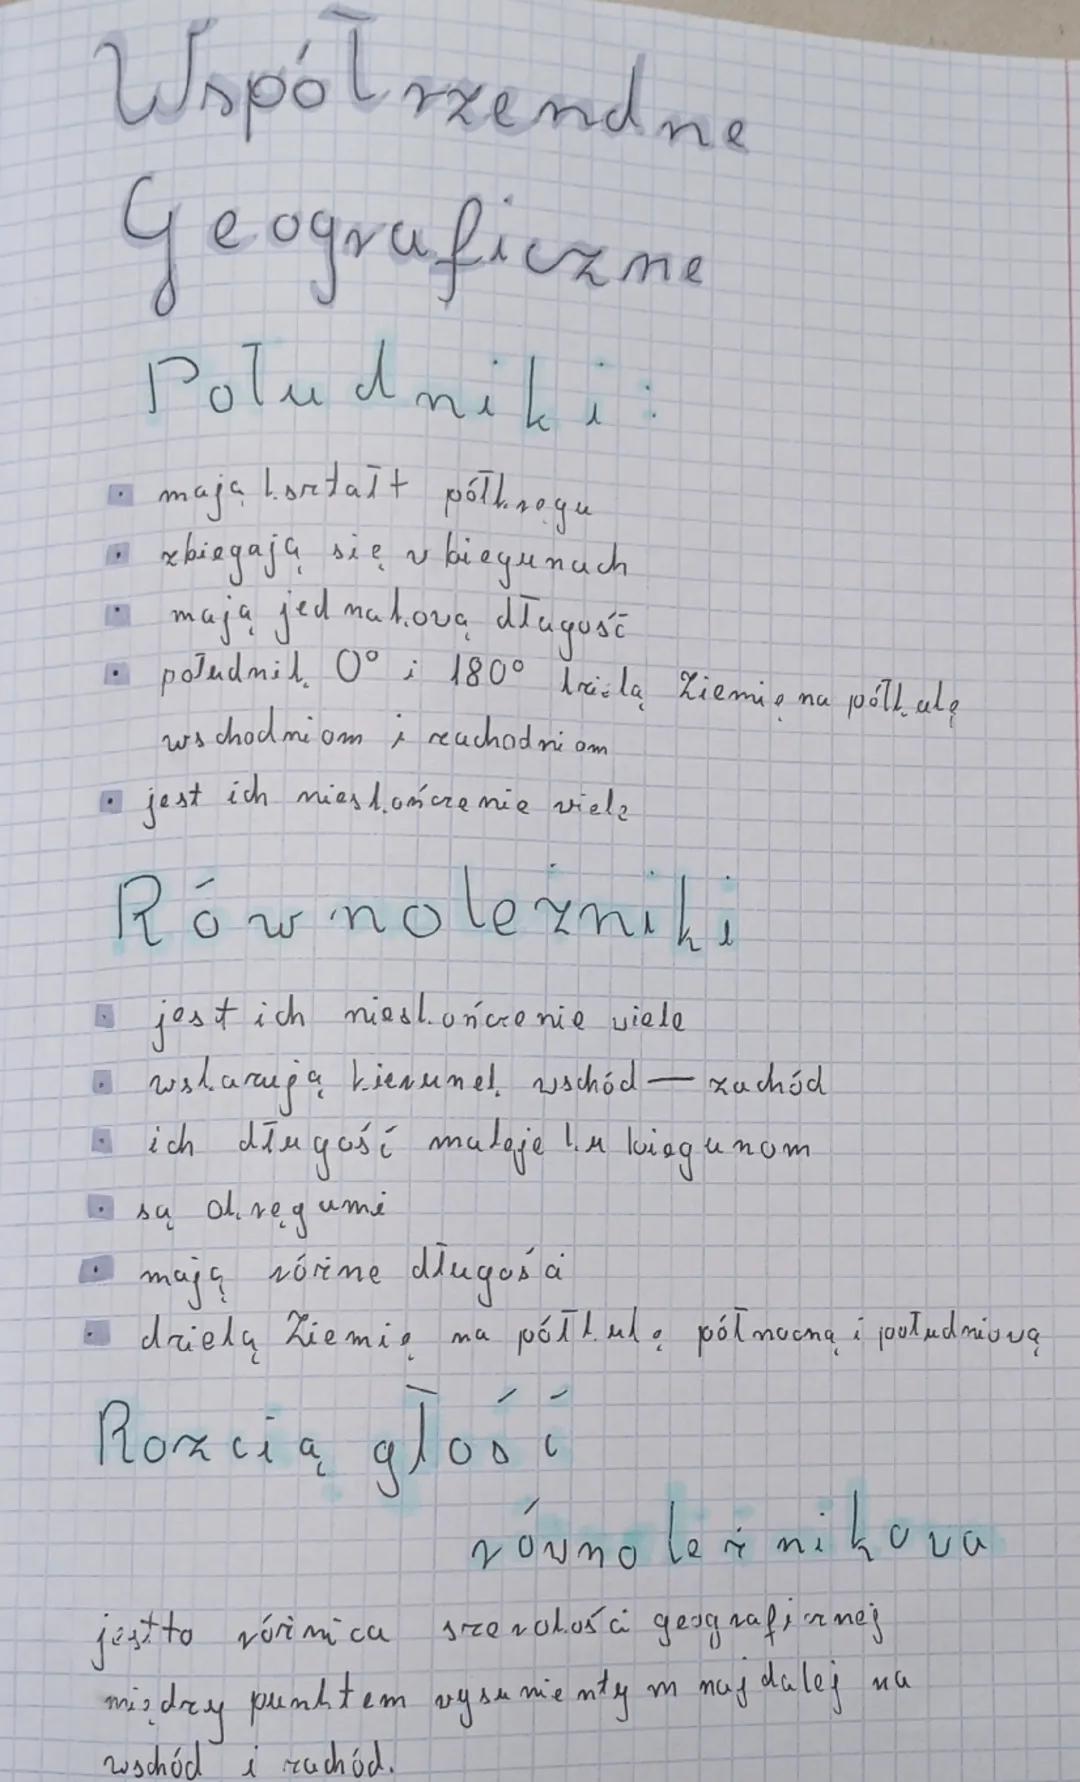 Współrzendne
Geograficzne
Południki:
mają kształt półkręgu
zbiegają się w biegunach
mają jednakową długość
południk 0° i 180° dzielą Ziemię na półkulę
wschodniom i zachodniom
jest ich nieskończenie wiele
Równoleżniki
jest ich nieskończenie wiele
wskazują kierunek wschód — zachód
ich długość maleje ku biegunom
są okręgami
mają różne długości
dzielą Ziemię na półkulę północną i południową
Rozciągłość
równoleżnikowa
jest to różnica szerokości geograficznej
między punktem wysuniętym najdalej na
wschód i zachód.